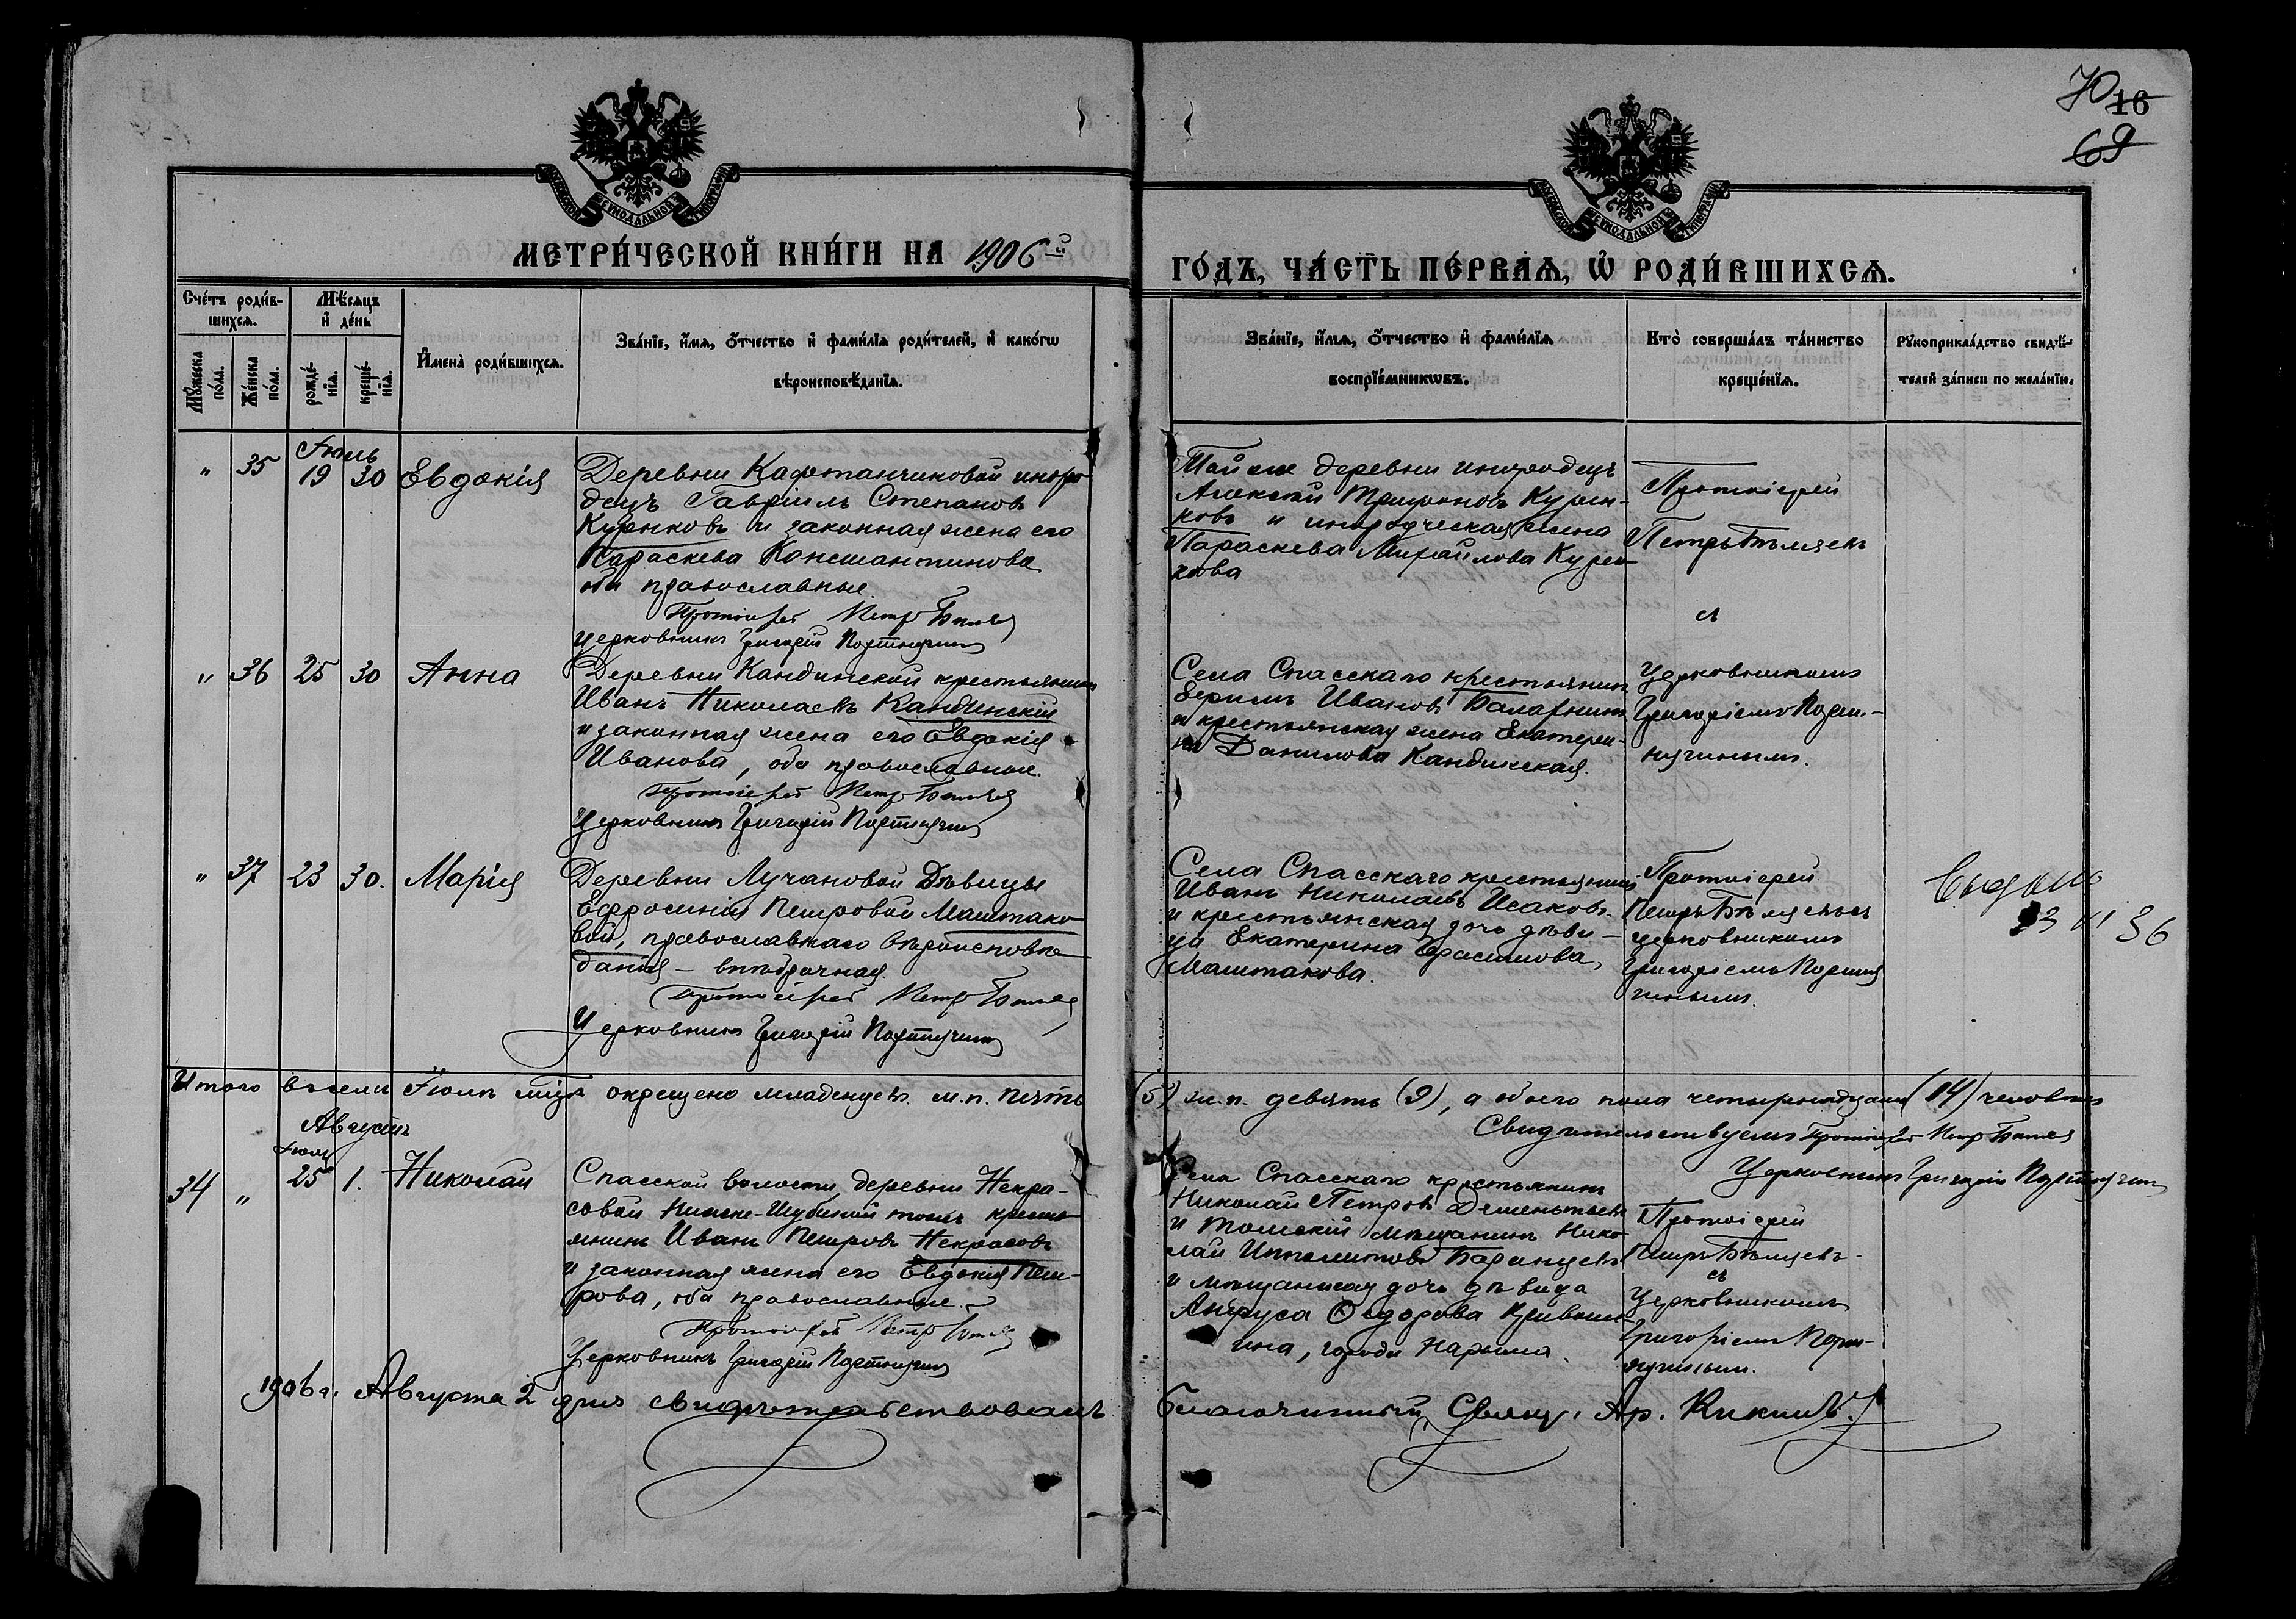 70 16
69
МЕТРИ́ЧЕСКОЙ КНИ́ГИ НА 1906й
ГО́ДЪ, ЧА́СТЬ ПЕ́РВАЯ, Ѡ҆ РОДИ́ВШИХСЯ.
Сче́тъ роди́в-
шихся.
Мѣ́сяцъ
и҆ де́нь
Мꙋ́жеска по́ла.
Же́нска по́ла.
рожде́-
нїя.
креще́-
нїя.
И҆мена̀ роди́вшихся.
Зва́нїе, и҆́мя, ѻ҆́тчество и҆ фами́лїя роди́телей, и҆ како́гѡ
вѣроисповѣ́данїя.
Зва́нїе, и҆́мя, ѻ҆́тчество и҆ фами́лїя
воспрїе́мникѡвъ.
Кто̀ соверша́лъ та́инство
креще́нїя.
Рꙋкоприкла́дство свидѣ́-
телей за́писи по жела́нїю.
Іюль
" 35 19 30 Евдокія
Деревни Кафтанчиковой иноро-
децъ Гавріилъ Степановъ
Куренковъ и законная жена его
Параскева Константинова
оба православные.
Протоіерей Петр Бѣляев
Церковникъ Григорій Портнягинъ
Той же деревни инородецъ
Алексѣй Трифоновъ Курен-
ковъ и инородческая жена
Параскева Михайлова Курен-
кова
Протоіерей
Петръ Бѣляевъ
с
" 36 25 30 Анна
Деревни Кандинской крестьянинъ
Иванъ Николаевъ Кандинскій
и законная жена его Евдокія
Иванова, оба православные.
Протоіерей Петр Бѣляев
Церковникъ Григорій Портнягинъ
Села Спасскаго крестьянинъ
Ефимъ Ивановъ
и крестьянская жена Екатери-
на Данилова Кандинская.
Церковникомъ
Григоріемъ Портн-
ягинымъ.
" 37 23 30. Марія
Деревни Лучановой дѣвицы
Ефросиніи Петровой Маштако-
вой, православнаго вѣроисповѣ-
данія – внѣбрачная.
Протоіерей Петр Бѣляев
Церковникъ Григорій Портнягинъ
Села Спасскаго крестьянинъ
Иванъ Николаевъ Исаковъ
и крестьянская дочь дѣви-
ца Екатерина Герасимова,
Маштакова.
Протоіерей
Петръ Бѣляевъ съ
церковникомъ
Григоріемъ Портня
гинымъ.
23 VI 36
Итого въ семъ Іюль мцѣ окрещено младенцевъ. м.п. пять (5) ж.п. девять (9), а обоего пола четырнадцать (14) человѣкъ
Свидѣтельствуемъ Протоіерей Петр Бѣляев
Церковникъ Григорій Портнягинъ
Августъ
Іюль
34 " 25 1. Николай
Спасской волости, деревни Некра-
совой Нижне-Шубиной тожъ кресть-
янинъ Иванъ Петровъ Некрасовъ
и законная жена его Евдокія Пет-
рова, оба православные.
Протоіерей Петр Бѣляев
Церковникъ Григорій Портнягинъ
Села Спасскаго крестьянинъ
Николай Петровъ Дементьевъ
и Томскій мѣщанинъ Нико-
лай Ипполитовъ
и мѣщанская дочь дѣвица
Ѳедорова
ина, города Нарыма.
Протоіерей
Петръ Бѣляевъ
съ
Церковникомъ
Григоріемъ Порт-
нягинымъ.
1906 г. Августа 2 дня свидѣтельствовалъ Благочинный Свящ. Ар.